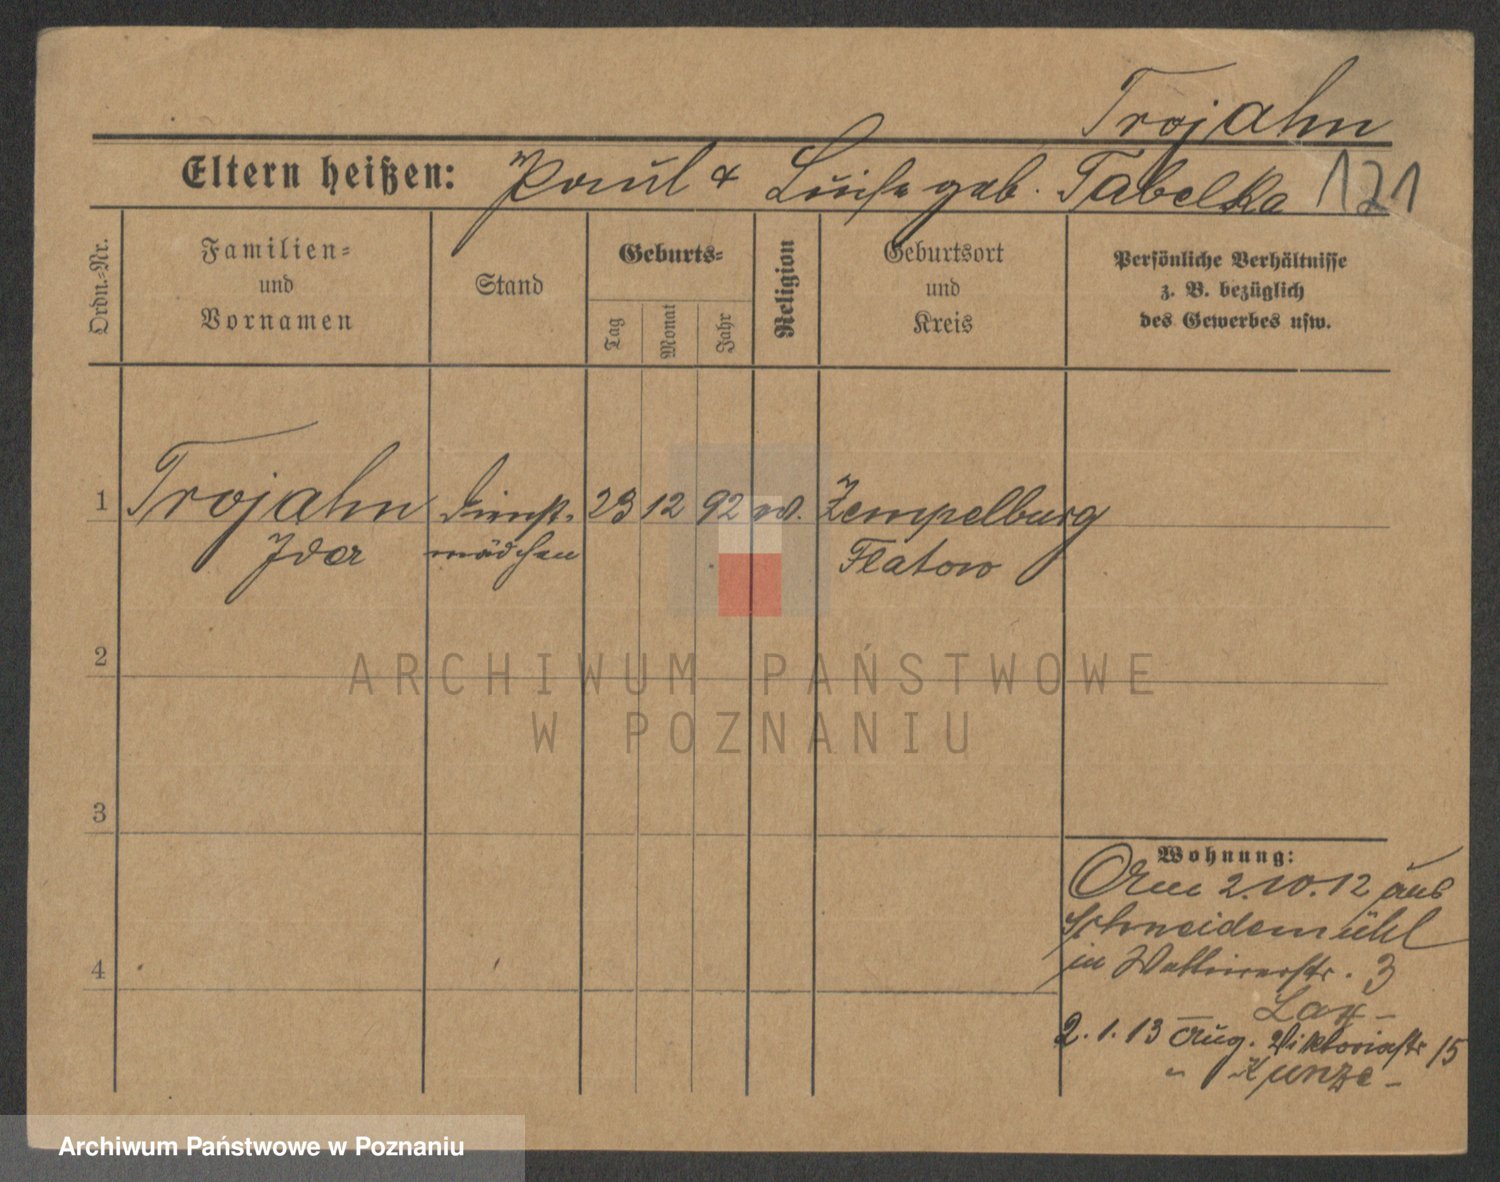 Trojahn
Eltern heißen: Paul & Luise geb. Tabelka 121
Ordn.-Nr.
Familien-
und
Vornamen
Stand
Geburts-
Tag
Monat
Jahr
Religion
Geburtsort
und
Kreis
Persönliche Verhältnisse
z. B. bezüglich
des Gewerbes usw.
1 Trojahn Dienst- 23 12 92 Zempelburg
Ida mädchen Flatow
2
ARCHIWUM PAŃSTWOWE
W POZNANIU
3
Wohnung:
Am 2.10.12 aus
Schneidemühl
in 3
2.1.13 Aug. Viktoriastr 15
" Kunze -
4
Archiwum Państwowe w Poznaniu